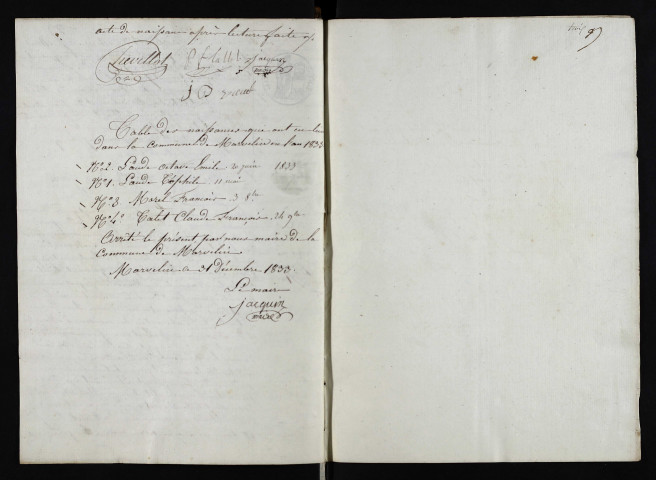 acte de naissance après lecture faite
jacquin
maire
Table des naissances qui ont eu lieu
dans la Commune de Marvelise en l'an 1833
N° 2. Laude octave Emile 20 juin 1833
N° 1. Laude Théophile 11 mai
N° 3. Morel François 3 8bre
N° 4. Catet Claude François. 24 9bre
Arrêté le présent par nous maire de la
Commune de Marvelise
Marvelise le 31 décembre 1833.
Le maire
jacquin
maire